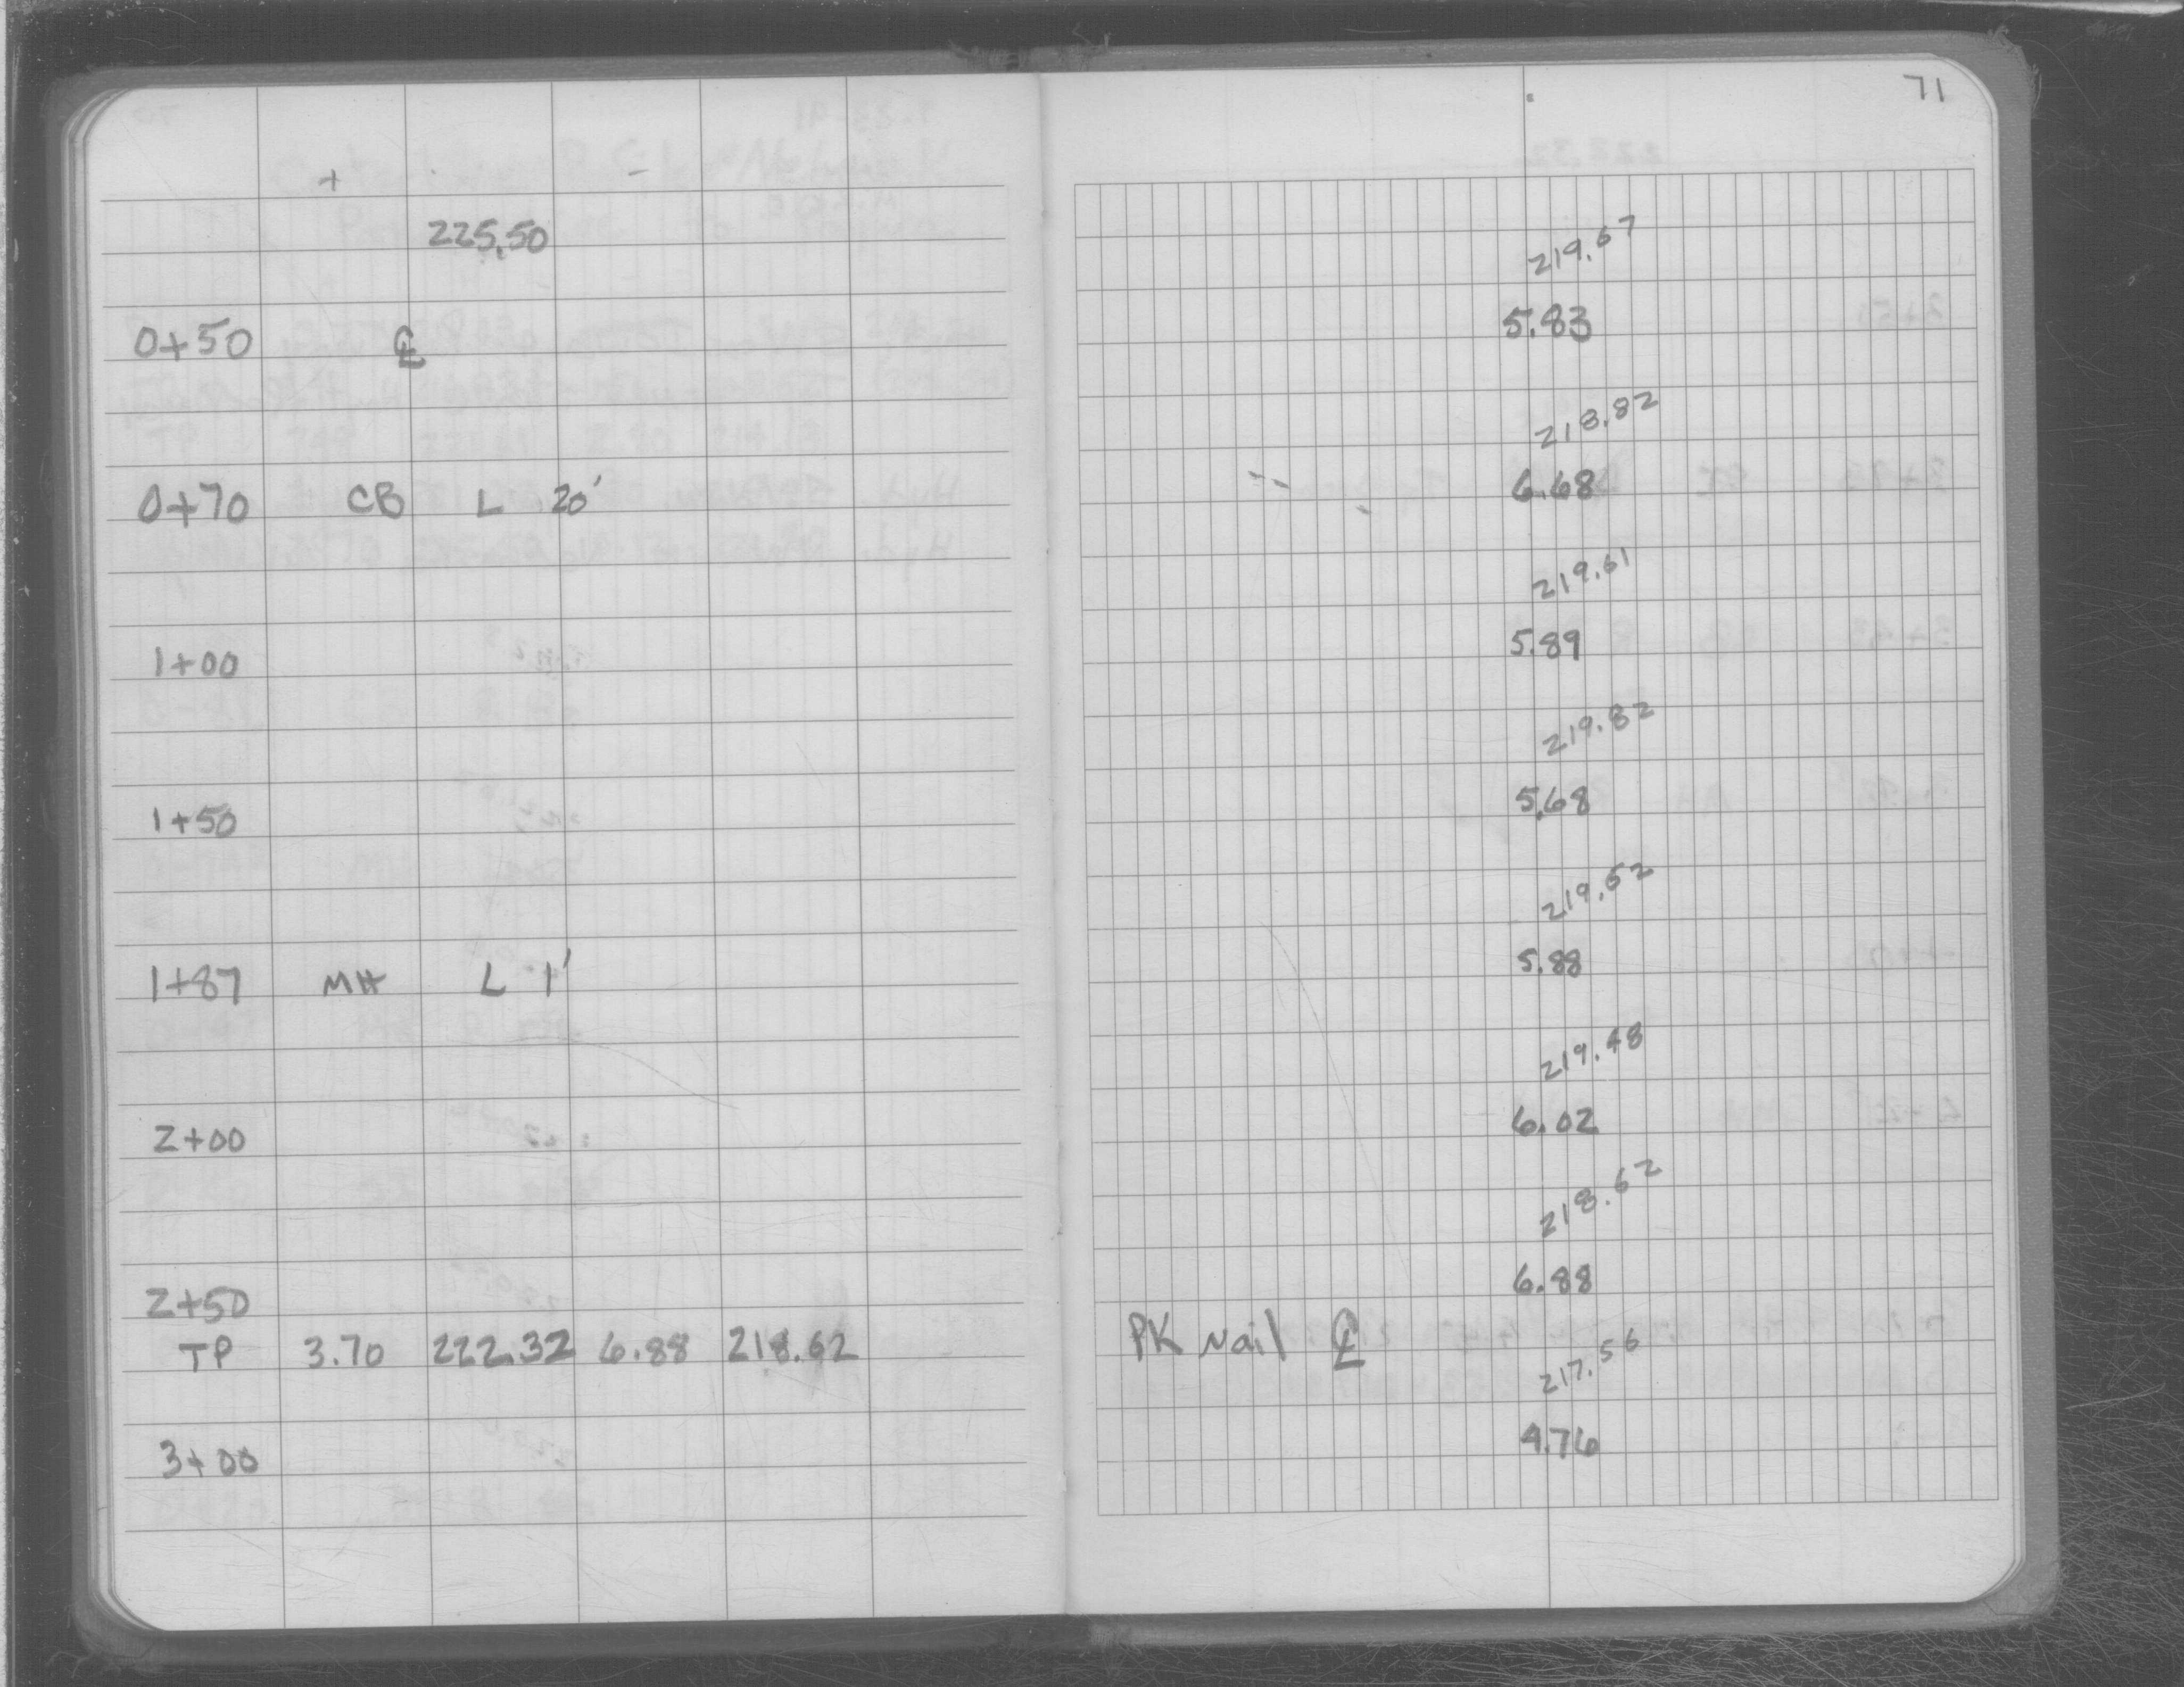 71
+ -
225.50
219.67
0+50 ℄ 5.83
218.82
0+70 CB L 20' 6.68
219.61
1+00 5.89
219.82
1+50 5.68
219.62
1+87 MH L 1' 5.88
219.48
2+00 6.02
218.62
2+50 6.88
TP 3.70 222.32 6.88 218.62 PK Nail ℄
217.56
3+00 4.76